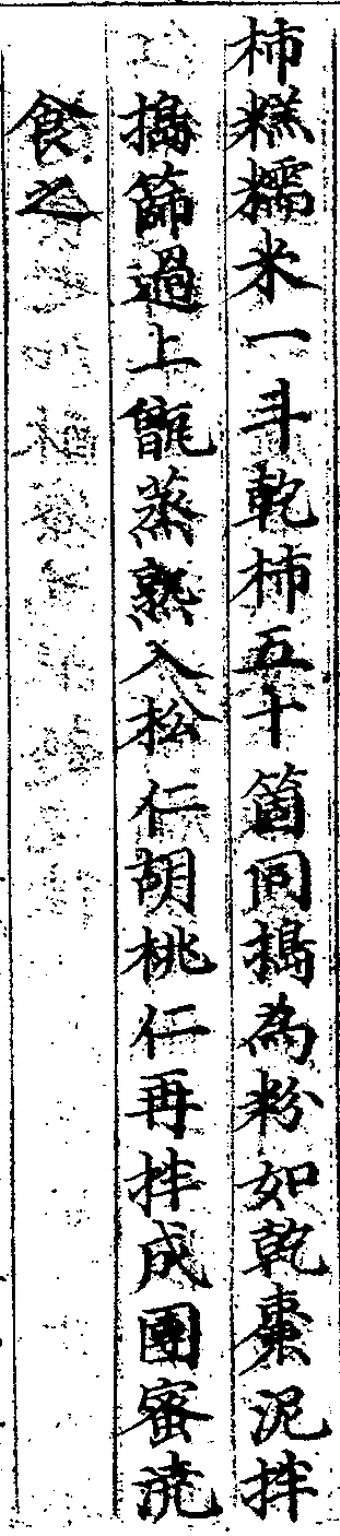 柿糕糯米一斗乾柿五十箇同搗為粉如乾棗泥拌
搗篩過上甑蒸熟入松仁胡桃仁再拌成團蜜澆
食之